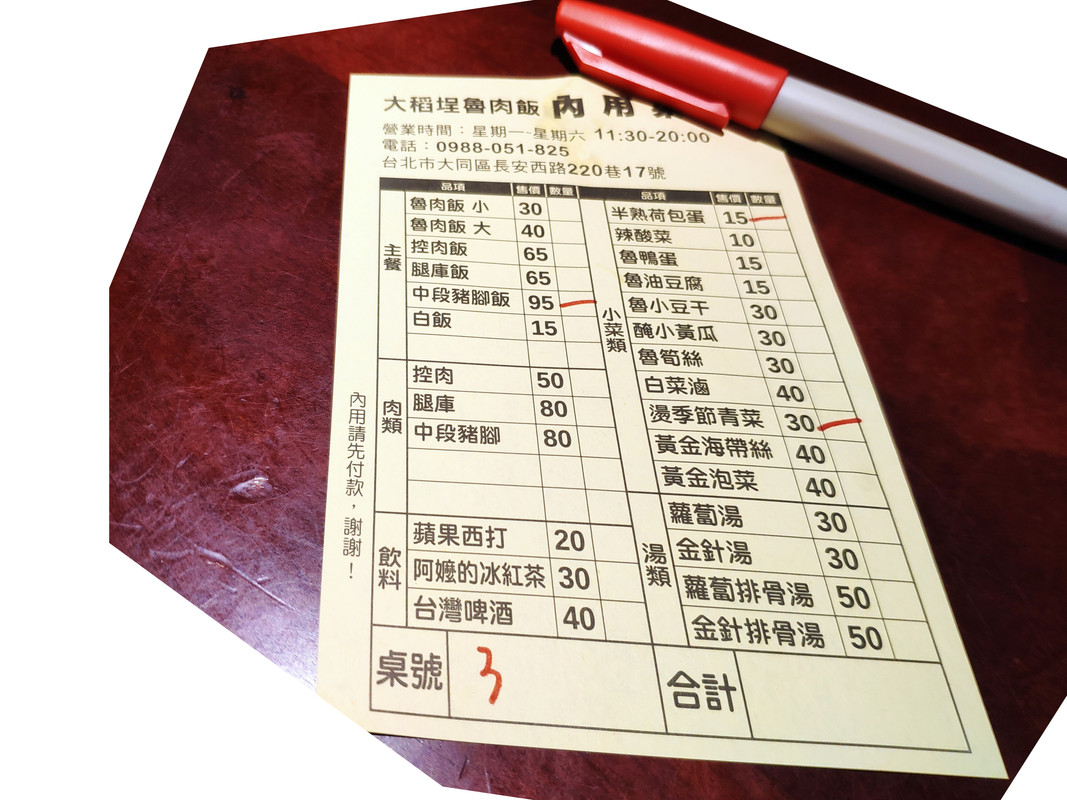 大稻埕魯肉飯 內用
營業時間：星期一~星期六 11:30-20:00
電話：0988-051-825
台北市大同區長安西路220巷17號
品項 售價 數量
主餐
魯肉飯 小 30
魯肉飯 大 40
控肉飯 65
腿庫飯 65
中段豬腳飯 95
白飯 15
肉類
控肉 50
腿庫 80
中段豬腳 80
飲料
蘋果西打 20
阿嬤的冰紅茶 30
台灣啤酒 40
品項 售價 數量
小菜類
半熟荷包蛋 15
辣酸菜 10
魯鴨蛋 15
魯油豆腐 15
魯小豆干 30
醃小黃瓜 30
魯筍絲 30
白菜滷 40
燙季節青菜 30
黃金海帶絲 40
黃金泡菜 40
湯類
蘿蔔湯 30
金針湯 30
蘿蔔排骨湯 50
金針排骨湯 50
桌號 3 合計
內用請先付款，謝謝！